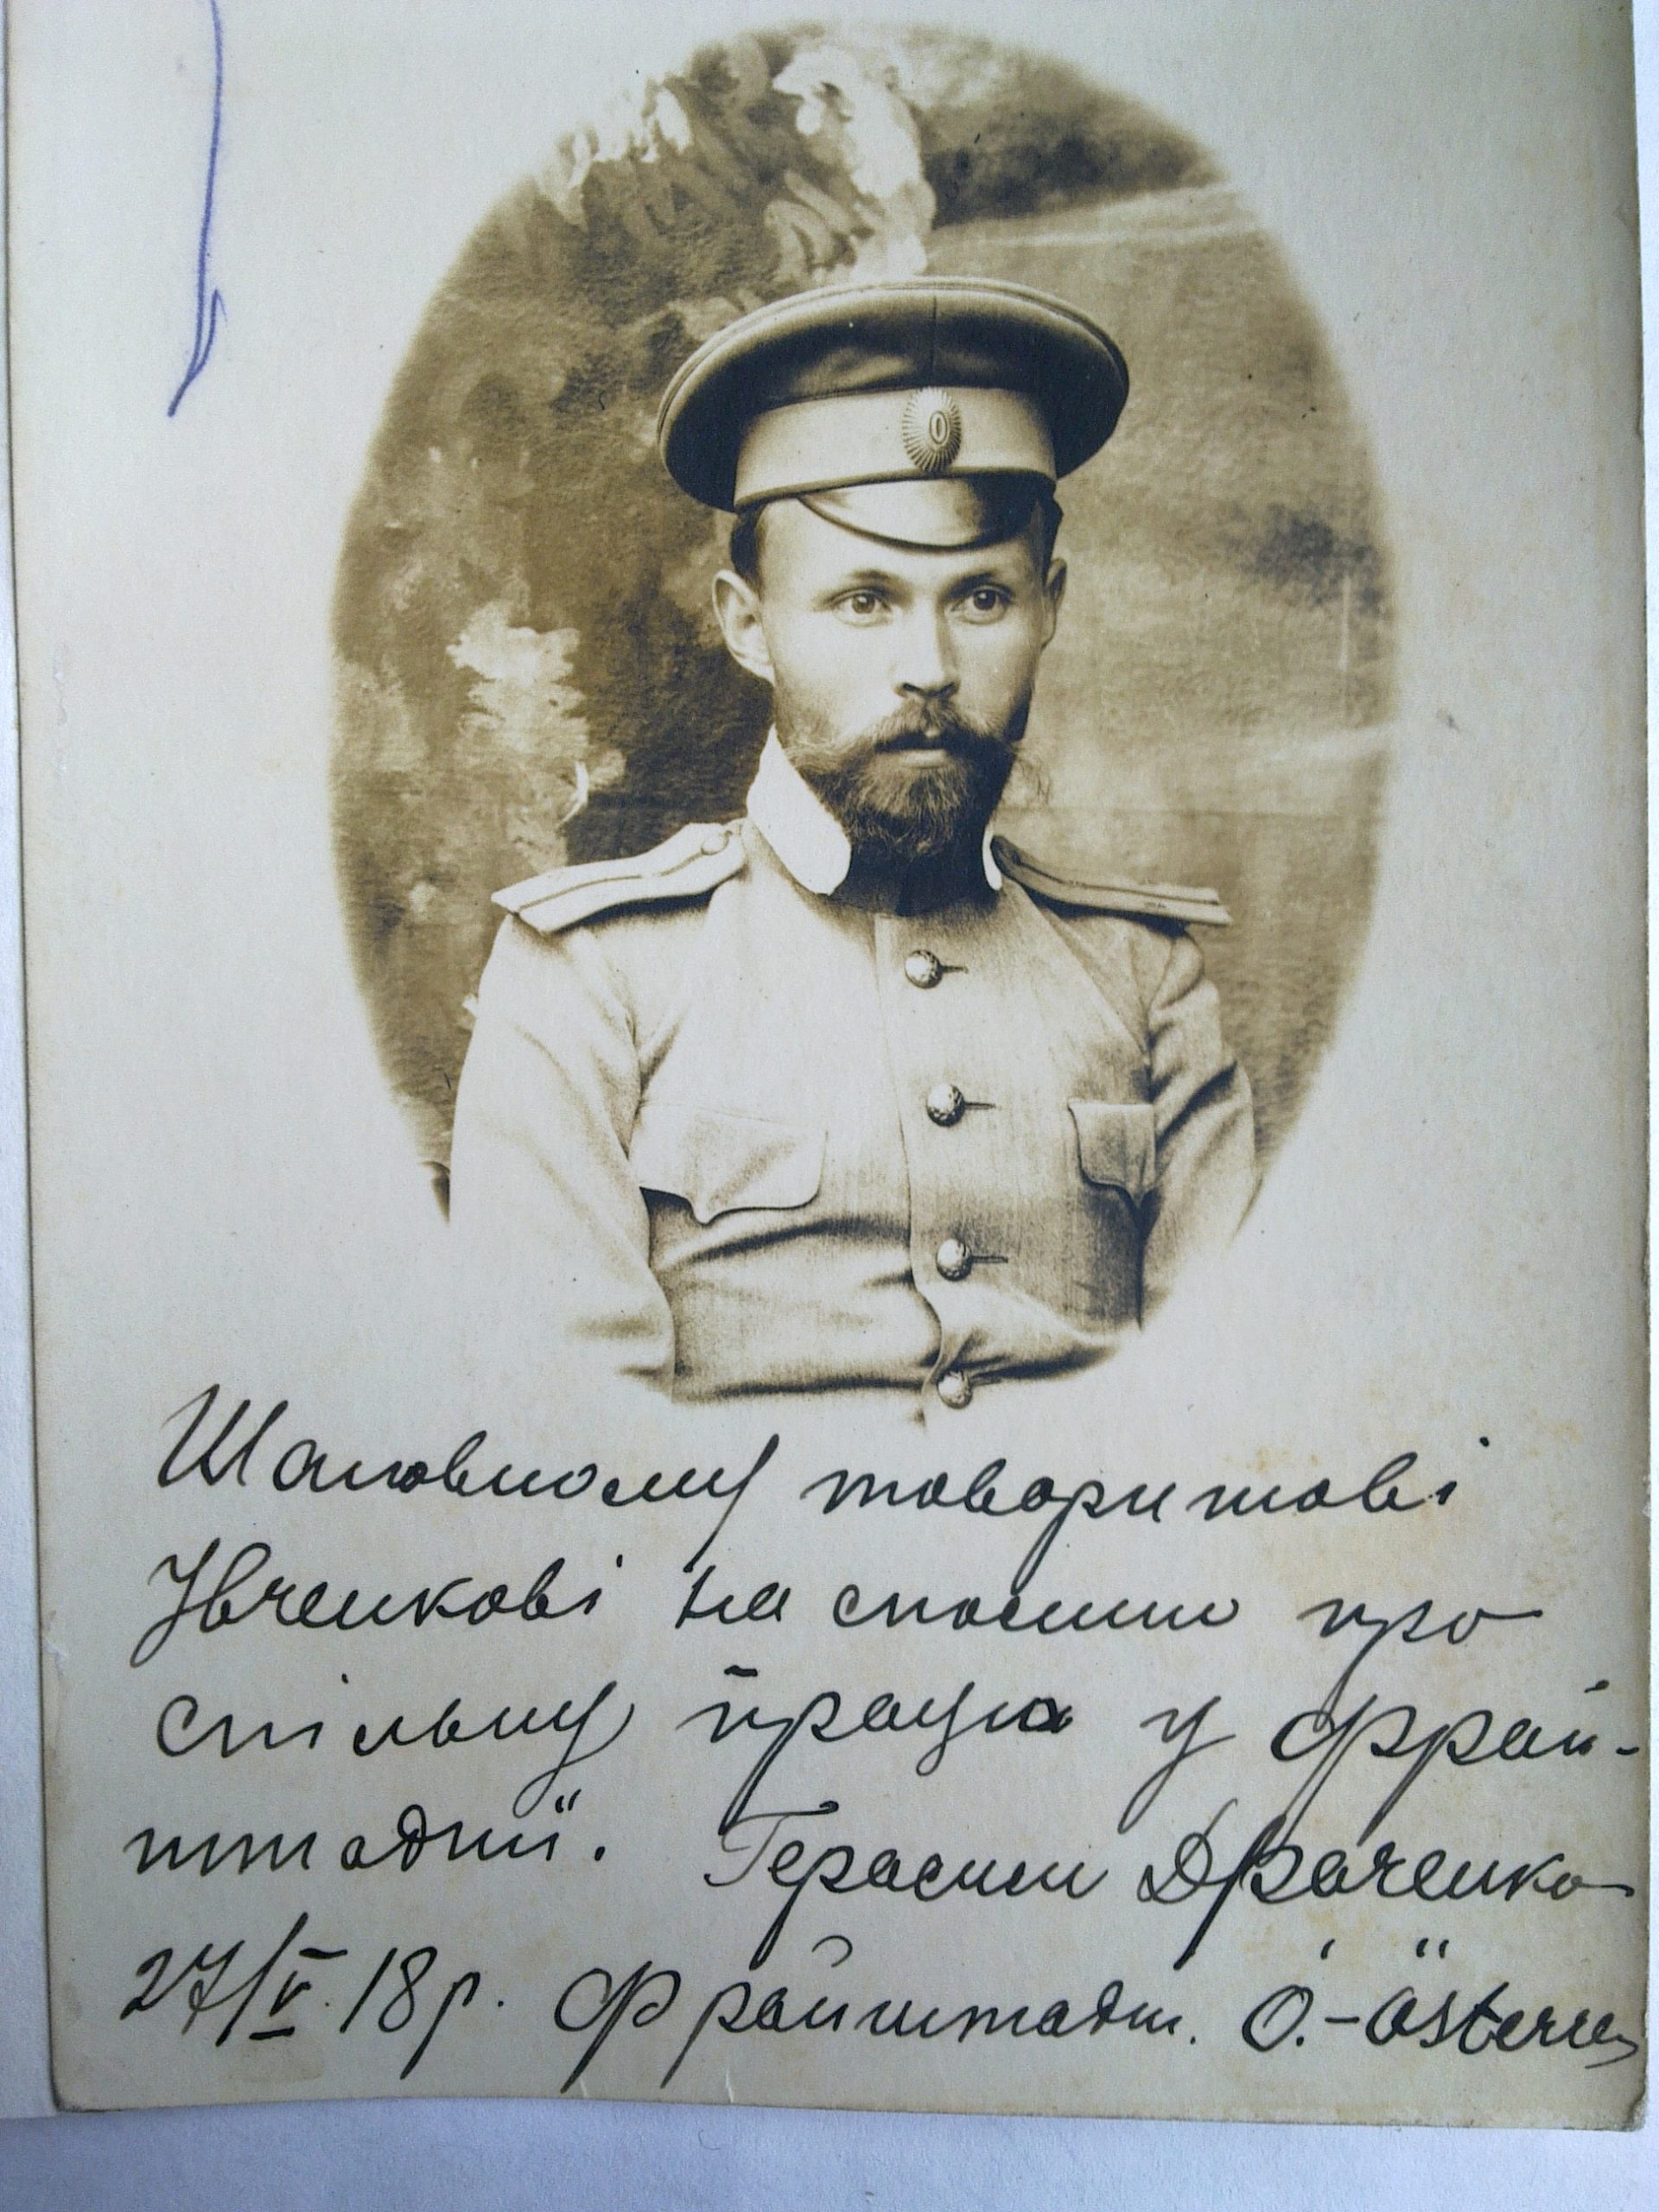 Шановному товаришові
Івченкові на спомин про
спільну працю у Фрай-
штадті. Герасим Драченко
27/V. 18 р. Фрайштадт. O.-Österr.